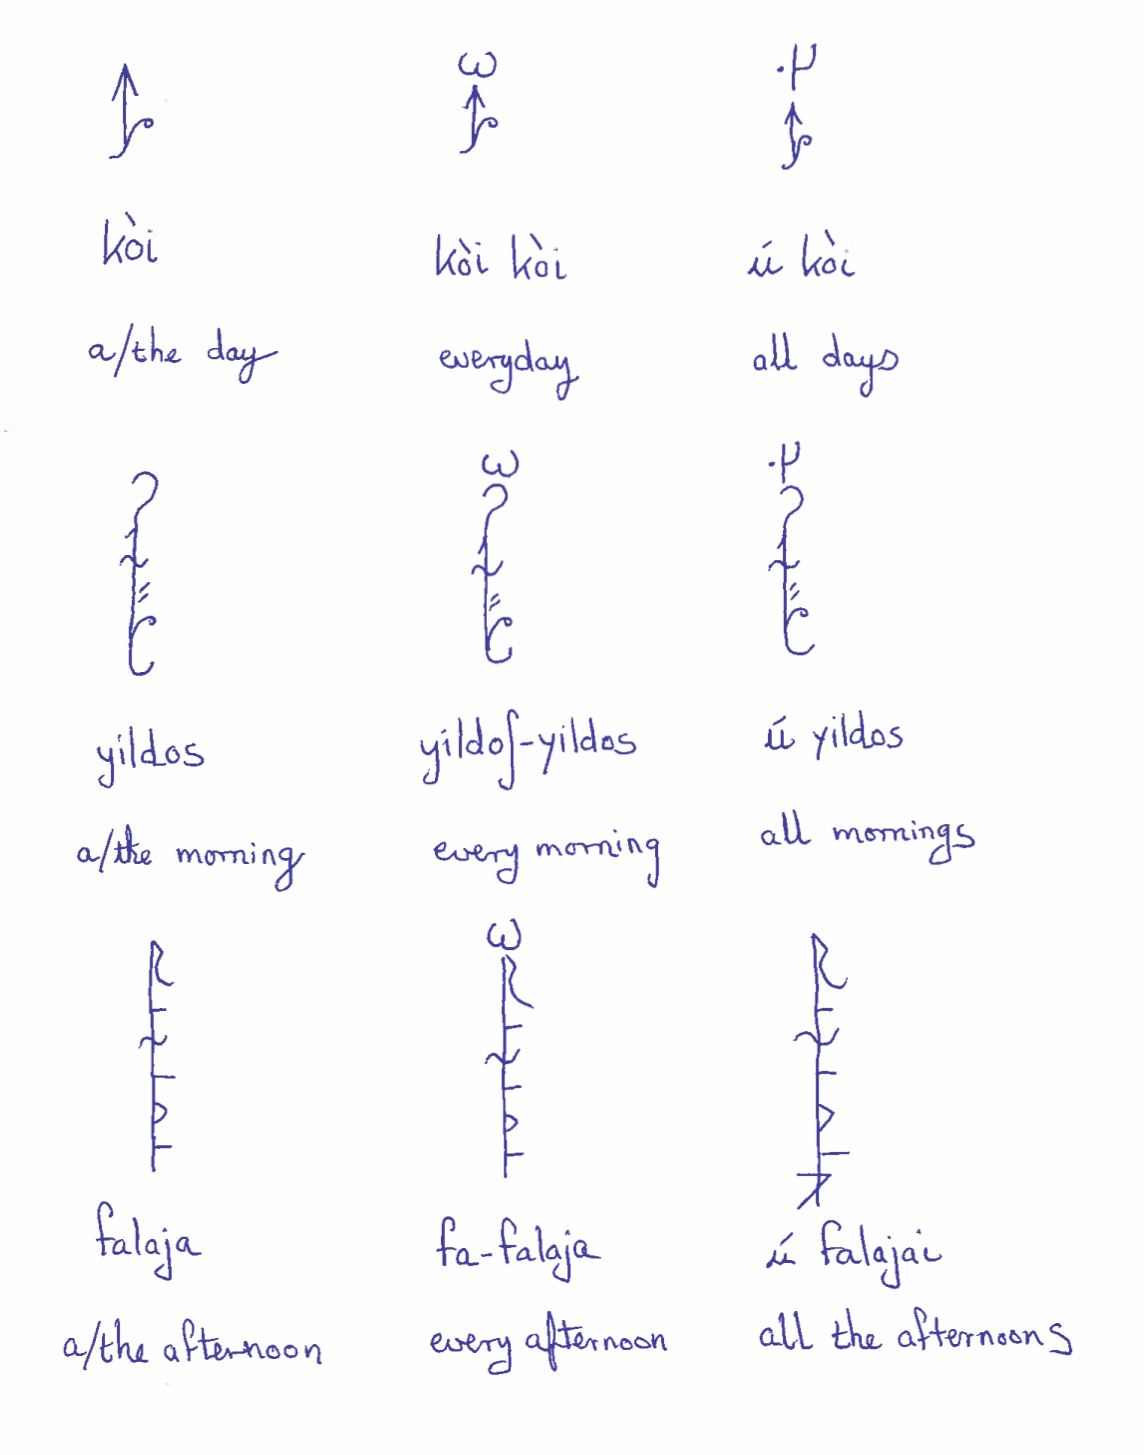 kòi kòi kòi ú kòi
a/the day everyday all days
yildos yildoſ-yildos ú yildos
a/the morning every morning all mornings
falaja fa-falaja ú falajai
a/the afternoon every afternoon all the afternoons